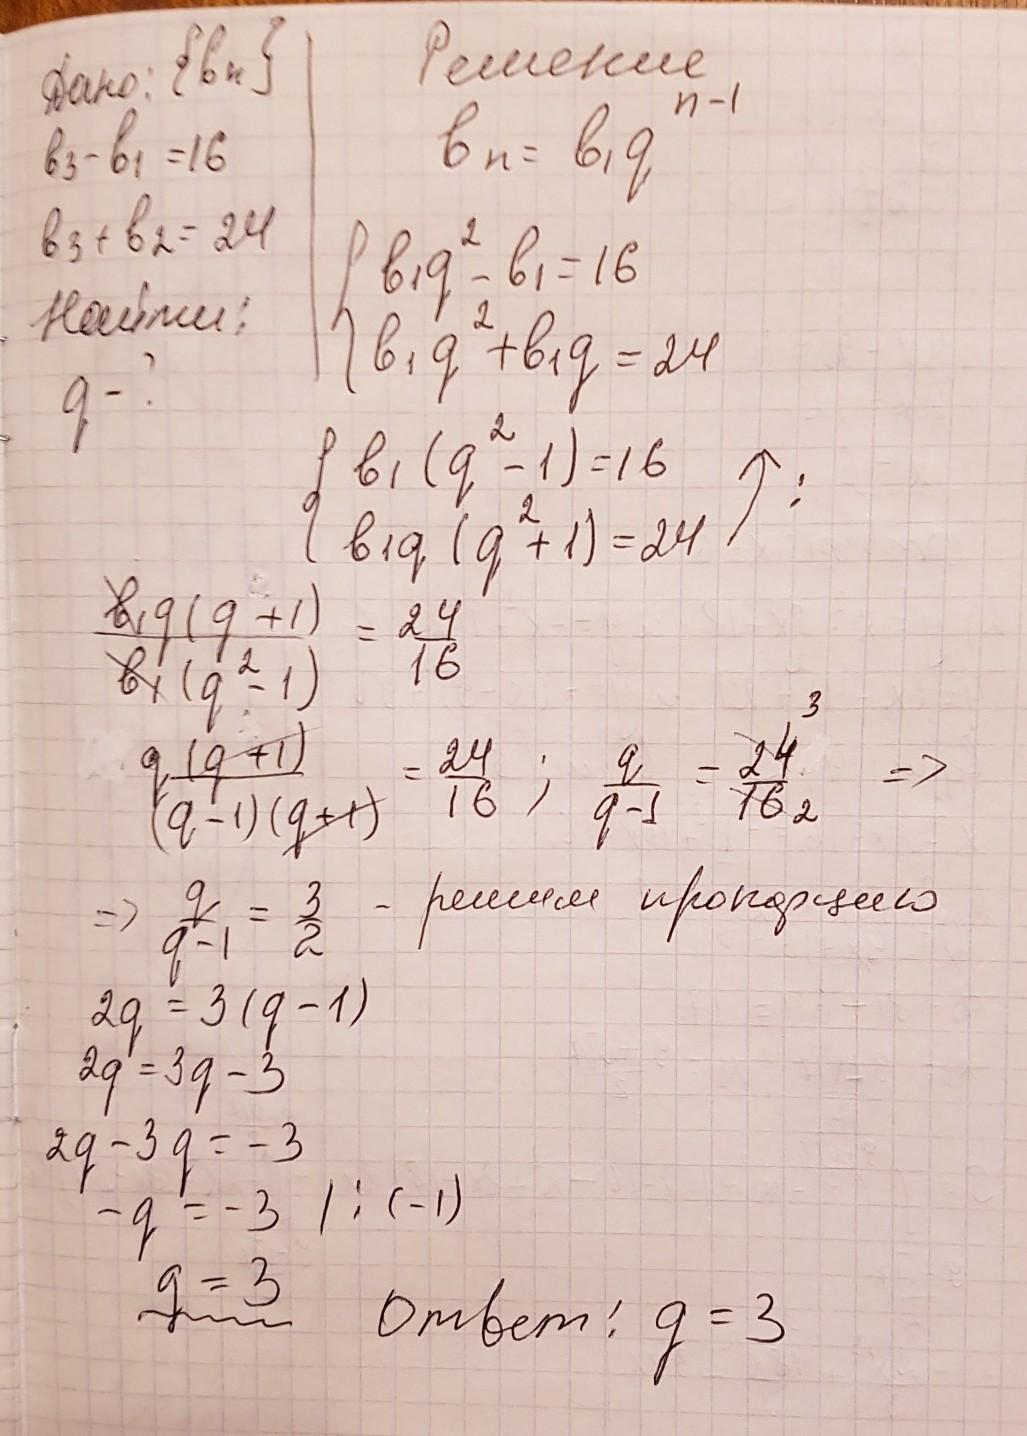 Дано: {bn}
b3 - b1 = 16
b3 + b2 = 24
Найти:
q - ?
Решение
bn = b1q^(n-1)
{ b1q² - b1 = 16
{ b1q² + b1q = 24
{ b1 (q² - 1) = 16
{ b1q (q² + 1) = 24 ↑ :
b1q(q + 1) / b1(q² - 1) = 24/16
q(q + 1) / (q - 1)(q + 1) = 24/16 ; q/(q - 1) = 24/16 3 2 =>
=> q/(q - 1) = 3/2 - решим пропорцию
2q = 3(q - 1)
2q = 3q - 3
2q - 3q = -3
-q = -3 | : (-1)
q = 3
Ответ: q = 3